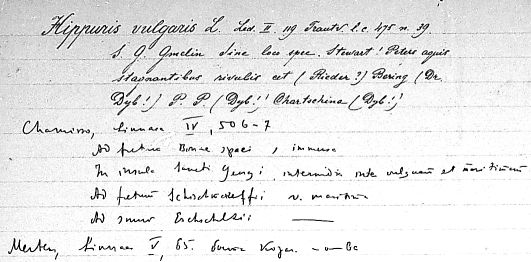 Hippuris vulgaris L. Led. II. 119 Trautv. l. c. 475 n. 39
S. G. Gmelin sine loco spec. Stewart! Peters aquis
stagnantibus rivulis cet (Rieder?) Bering (Dr.
Dyb!) P. P. (Dyb!) Chartschina (Dyb!)
Chamisso, Linnaea IV, 506-7
Ad fretum Bonae spei,
In insula Sancti Georgi, intermedia inter vulgarem et maritimam
Ad fretum Schischmareffii v. maritima
Ad sinum Eschscholzii ———
Mertens, Linnaea V, 65.